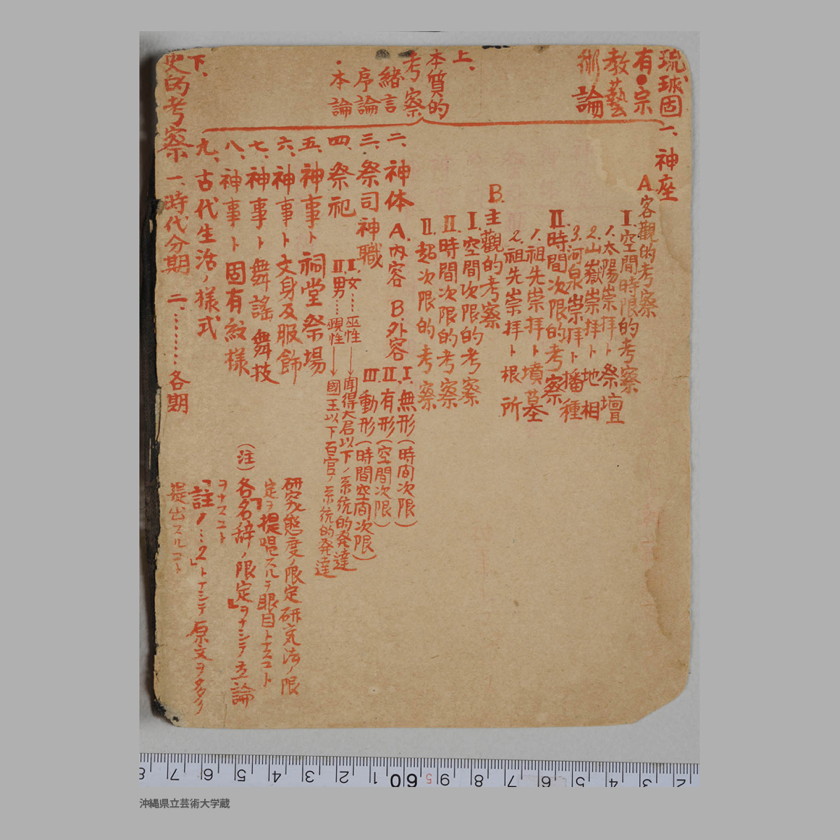 琉球固
有●宗
教藝
術論
上、
本質的
考察
緒言
序論
・本論
一、神座
A 客觀的考察
I. 空間時限的考察
1. 太陽崇拝ト祭壇
2. 山嶽崇拝ト地相
3. 河泉崇拝ト播種
II. 時間次限的考察
1. 祖先崇拝ト墳墓
2. 祖先崇拝ト根所
B. 主觀的考察
I. 空間次限的考察
II. 時間次限的考察
II. 起次限的考察
二、神体 A. 内容 B. 外容
I. 無形(時间次限)
II. 有形(空間次限)
III. 動形(時間空间次限)
三、祭司神職
I. 女…巫性→聞得大君以下ノ系統的發達
II. 男…覡性→國王以下百官ノ系統的發達
四、祭祀
五、神事ト祠堂祭場
六、神事ト文身及服飾
七、神事ト舞謡舞技
八、神事ト固有紋様
九、古代生活ノ様式
下、
史的考察
一、時代分期 二、………各期
研究態度ノ限定研究法ノ限
定ヲ提唱スルヲ眼目トスコト
(注)各「名辞ノ限定」ヲナシテ立論
ヲナスコト
「註ノ…2」トイシテ原文ヲ多ク
提出スルコト
沖縄県立芸術大学蔵
8 7 6 5 4 3 2 1 60 9 8 7 6 5 4 3 2
5